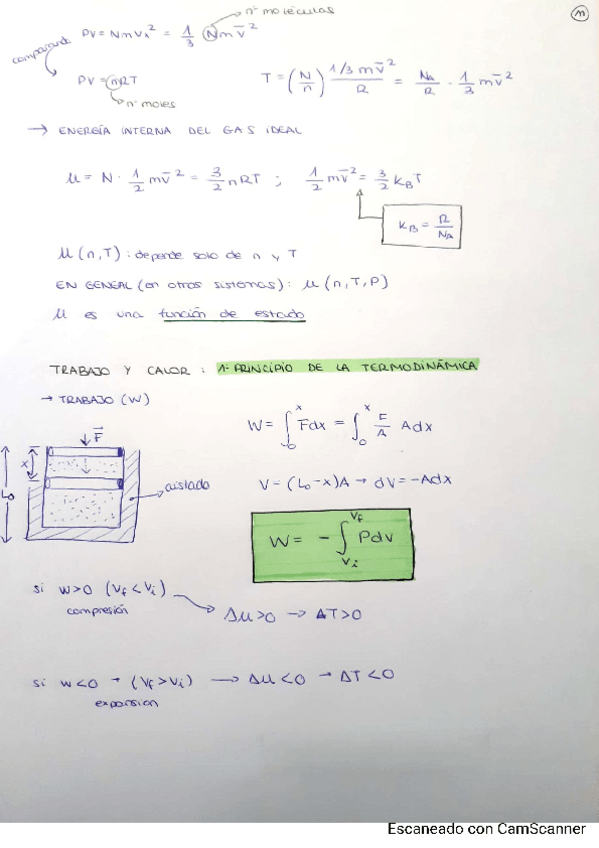 nº moléculas
11
comparando PV = N m vₓ² = 1/3 N m v̄²
PV = nRT
nº moles
T = (N/n) (1/3 m v̄²)/R = N_A/R · 1/3 m v̄²
→ ENERGÍA INTERNA DEL GAS IDEAL
U = N · 1/2 m v̄² = 3/2 nRT ; 1/2 m v̄² = 3/2 k_B T
k_B = R/N_A
U (n,T) : depende solo de n y T
EN GENEAL (en otros sistemas) : U (n,T,P)
U es una función de estado
TRABAJO Y CALOR : 1º PRINCIPIO DE LA TERMODINÁMICA
→ TRABAJO (W)
W = ∫₀ˣ Fdx = ∫₀ˣ F/A Adx
F⃗
x
L₀
aislado
V = (L₀-x)A → dV = -Adx
W = - ∫_{Vi}^{Vf} PdV
si W>0 (Vf < Vi)
compresión
ΔU>0 → ΔT>0
si W<0 → (Vf > Vi) → ΔU<0 → ΔT<0
expansion
Escaneado con CamScanner